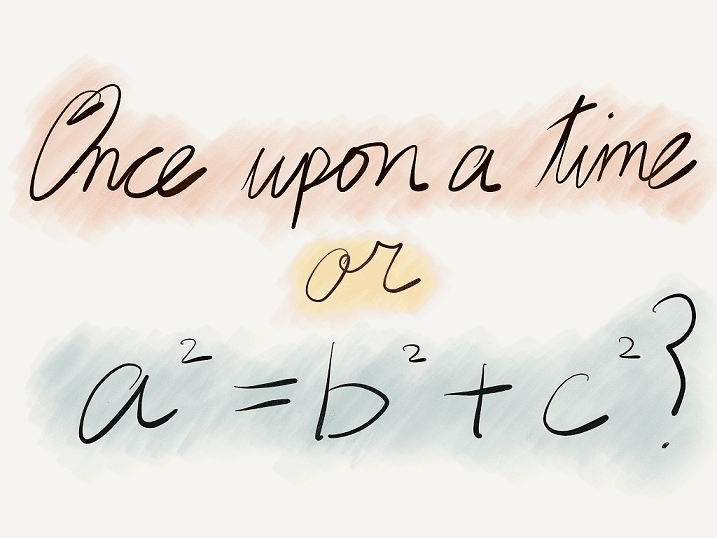 Once upon a time
or
a² = b² + c²?